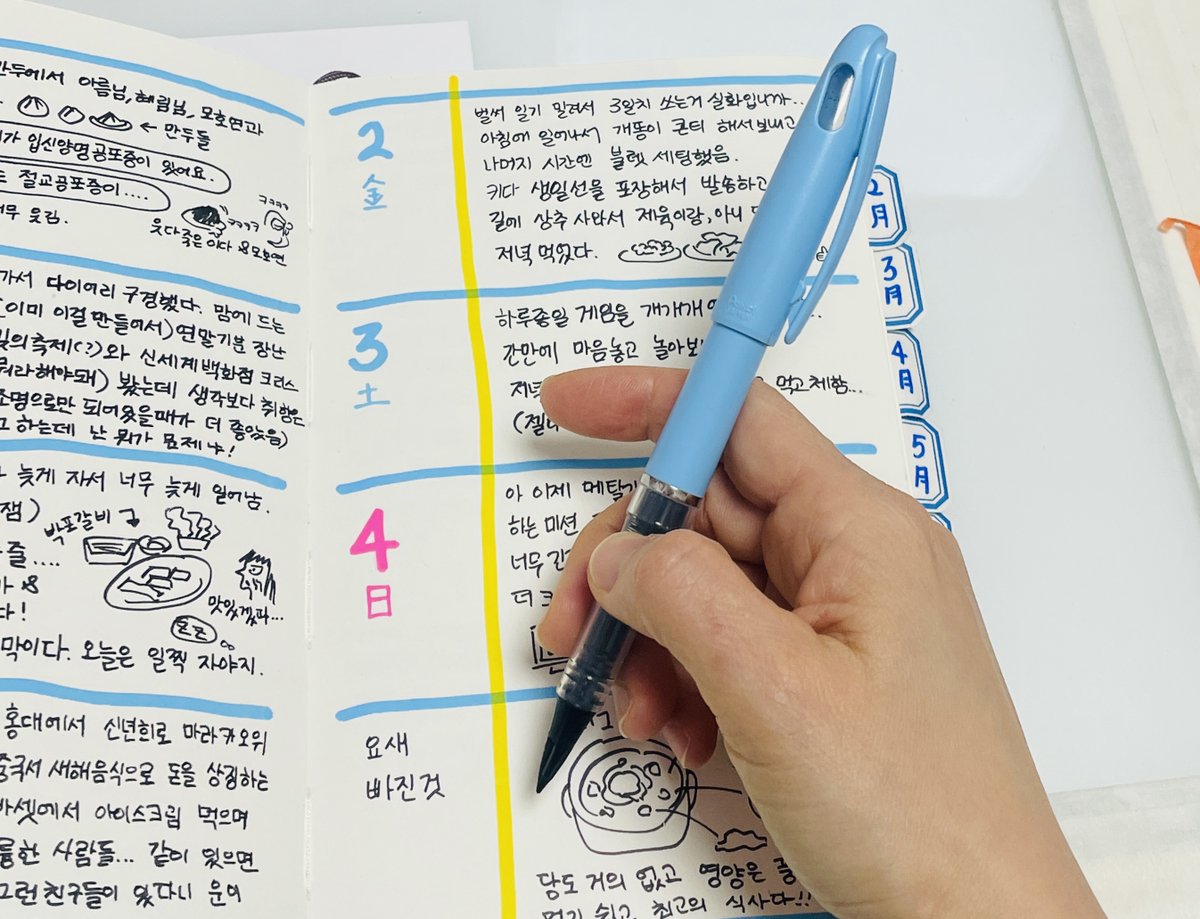 만두에서 아름님, 혜림님, 모호연과
← 만두들
가 입신양명공포증이 있어요.
절교공포증이....
너무 웃김.
ㅋㅋㅋㅋ
ㅋㅋㅋㅋ
웃다죽은이다 & 모호연
가서 다이어리 구경했다. 맘에 드는
(이미 이걸 만들어서) 연말기분 장난
빛의축제(?)와 신세계백화점 크리스
뭐라해야돼) 봤는데 생각보다 취향은
조명으로만 되어있을때가 더 좋았음)
하는데 난 뭐가 문제냐!
늦게 자서 너무 늦게 일어남.
잼)
박포갈비
즐....
맛있겠따...
쫀쫀
다!
막이다. 오늘은 일찍 자야지.
홍대에서 신년회로 마라카오위
중국서 새해음식으로 돈을 상징하는
바셋에서 아이스크림 먹으며
륭한 사람들... 같이 있으면
그런 친구들이 있다니 운이
2
金
벌써 일기 밀려서 3일치 쓰는거 실화입니까..
아침에 일어나서 개똥이 콘티 해서 보내고
나머지 시간엔 불렛 세팅했음.
키다 생일선물 포장해서 발송하고
길에 상추 사와서 제육이랑, 아니
저녁 먹었다.
3
土
하루종일 게임을 개개개
간만에 마음놓고 놀아보
저녁 먹고 체함...
4
日
아 이제 메탈
하는 미션
너무
더
요새
빠진것
당도 거의 없고 영양은
먹기 쉽고 최고의 식사다!!
2
月
3
月
4
月
5
月